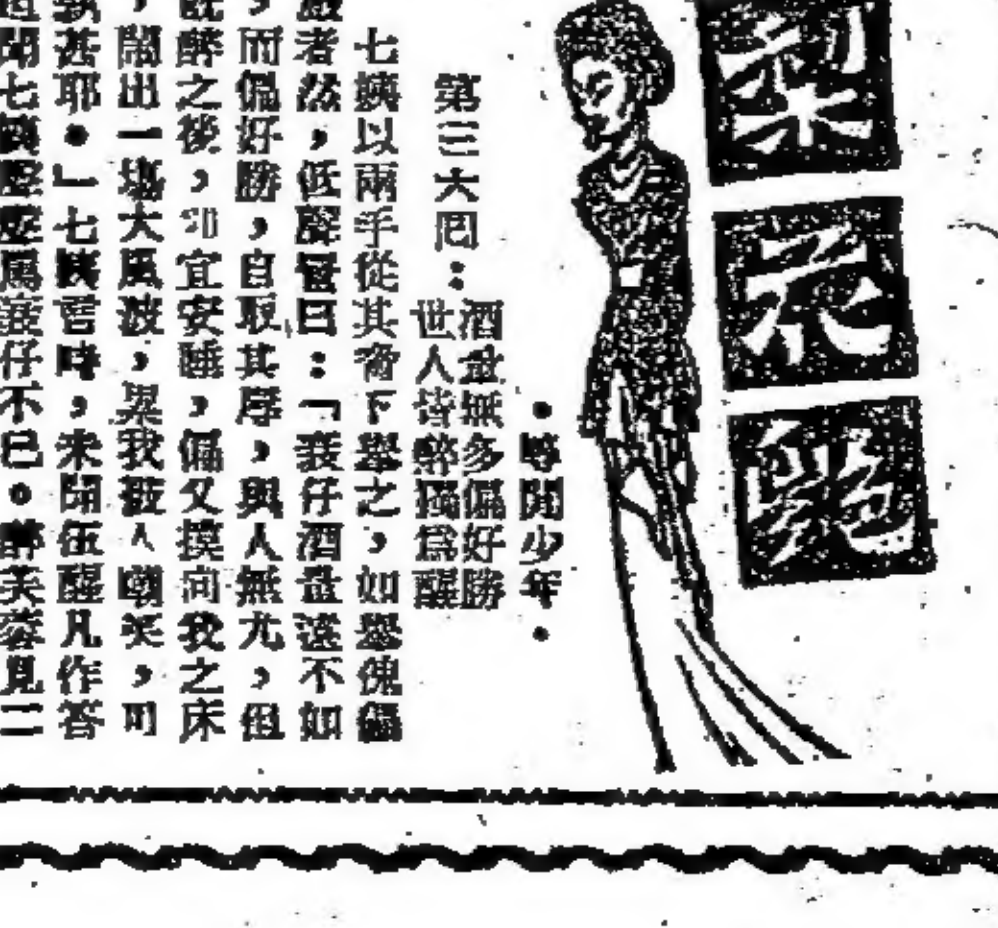 梨花艷
•等閒少年•
第三六回：
酒量無多偏好勝
世人皆醉獨為醒
七姨以兩手從其脅下舉之，如舉傀儡
者然，低聲詈曰：「衰仔酒量遠不如
，而偏好勝，自取其辱，與人無尤，但
醉之後，宜安睡，偏又摸向我之床
，鬧出一塲大風波，累我被人嘲笑，可
甚耶。」七姨詈時，未聞伍醒凡作答
聞七姨 罵衰仔不已。醉芙蓉見二